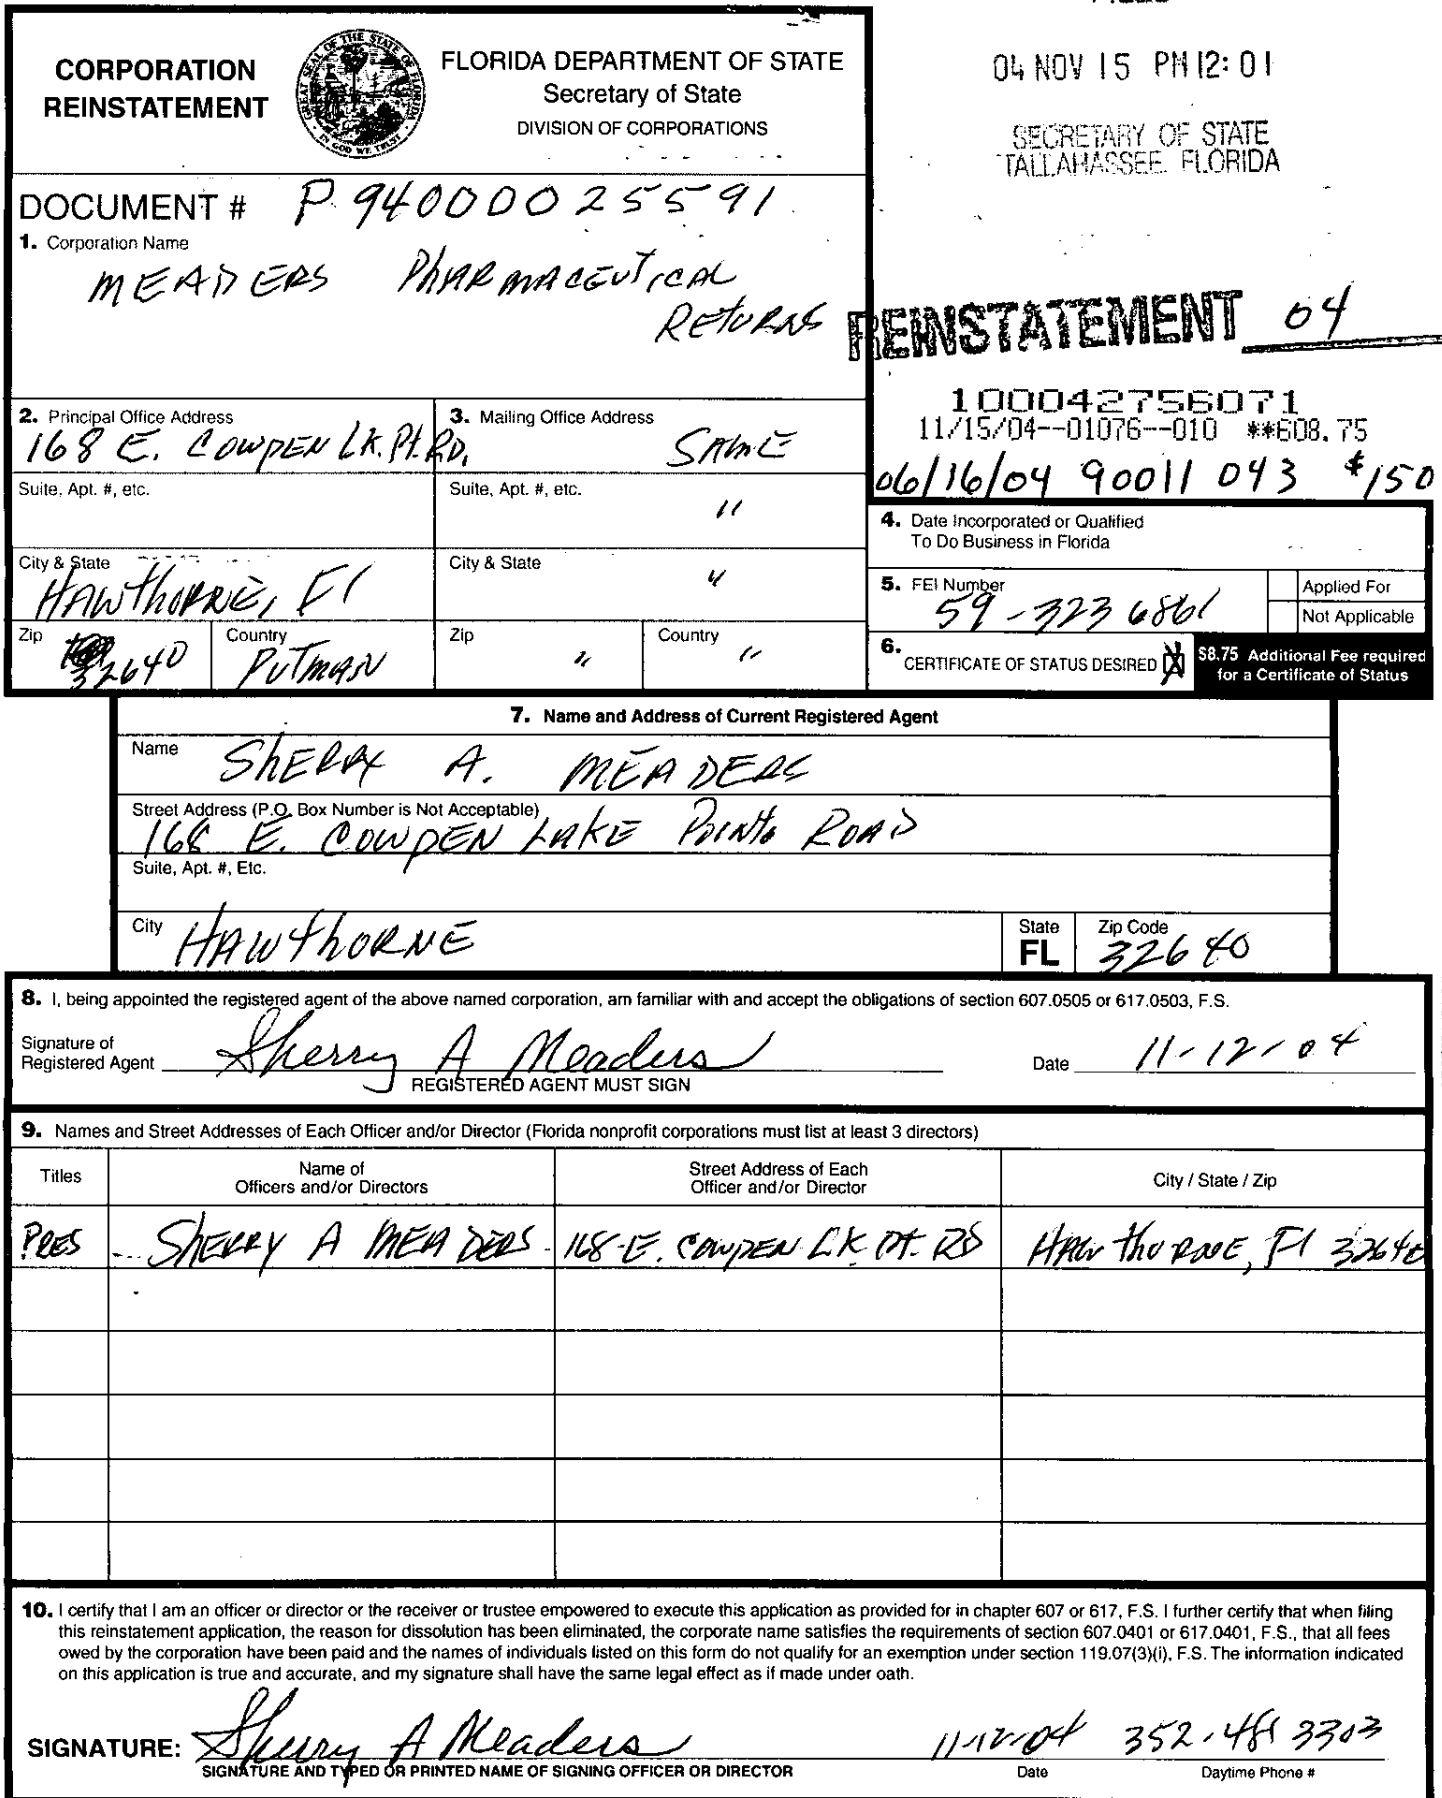 CORPORATION
REINSTATEMENT
FLORIDA DEPARTMENT OF STATE
Secretary of State
DIVISION OF CORPORATIONS
04 NOV 15 PM 12:01
SECRETARY OF STATE
TALLAHASSEE, FLORIDA
DOCUMENT # P94000025591
1. Corporation Name
MEADERS PHARMACEUTICAL
RETURNS
REINSTATEMENT 04
100042756071
11/15/04--01076--010 **608.75
06/16/04 90011 043 $150
2. Principal Office Address
168 E. COWPEN LK. Pt. RD.
3. Mailing Office Address
SAME
Suite, Apt. #, etc.
Suite, Apt. #, etc.
"
City & State
HAWTHORNE, Fl
City & State
"
Zip
32640
Country
PUTMAN
Zip
"
Country
"
4. Date Incorporated or Qualified
To Do Business in Florida
5. FEI Number
59-3236861
Applied For
Not Applicable
6. CERTIFICATE OF STATUS DESIRED X
$8.75 Additional Fee required
for a Certificate of Status
7. Name and Address of Current Registered Agent
Name
SHERRY A. MEADERS
Street Address (P.O. Box Number is Not Acceptable)
168 E. COWPEN LAKE Pointe ROAD
Suite, Apt. #, Etc.
City
HAWTHORNE
State
FL
Zip Code
32640
8. I, being appointed the registered agent of the above named corporation, am familiar with and accept the obligations of section 607.0505 or 617.0503, F.S.
Signature of
Registered Agent Sherry A Meaders
REGISTERED AGENT MUST SIGN
Date 11-12-04
9. Names and Street Addresses of Each Officer and/or Director (Florida nonprofit corporations must list at least 3 directors)
Titles
Name of
Officers and/or Directors
Street Address of Each
Officer and/or Director
City / State / Zip
PRES SHERRY A MEADERS 168 E. COWPEN LK Pt. RD HAWTHORNE, Fl 32640
10. I certify that I am an officer or director or the receiver or trustee empowered to execute this application as provided for in chapter 607 or 617, F.S. I further certify that when filing
this reinstatement application, the reason for dissolution has been eliminated, the corporate name satisfies the requirements of section 607.0401 or 617.0401, F.S., that all fees
owed by the corporation have been paid and the names of individuals listed on this form do not qualify for an exemption under section 119.07(3)(i), F.S. The information indicated
on this application is true and accurate, and my signature shall have the same legal effect as if made under oath.
SIGNATURE: Sherry A Meaders 11-12-04 352-481 3303
SIGNATURE AND TYPED OR PRINTED NAME OF SIGNING OFFICER OR DIRECTOR
Date
Daytime Phone #